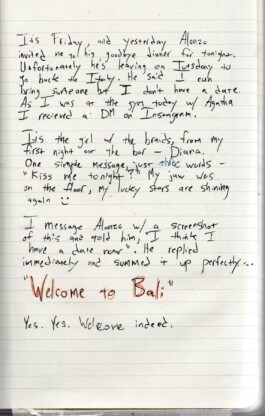 Its Friday, and yesterday Alonzo
invited me to his goodbye dinner for tonight.
Unfortunately he's leaving on Tuesday to
go back to Italy. He said I can
bring someone but I don't have a date.
As I was at the gym today w/ Agatha
I recieved a DM on Instagram.
Its the girl w/ the braids, from my
first night at the bar - Diana.
One simple message, just three words -
"Kiss me tonight". My jaw was
on the floor, my lucky stars are shining
again :)
I message Alonzo w/ a screenshot
of this and told him, "I think I
have a date now". He replied
immediately and summed it up perfectly...
"Welcome to Bali"
Yes. Yes. Welcome indeed.